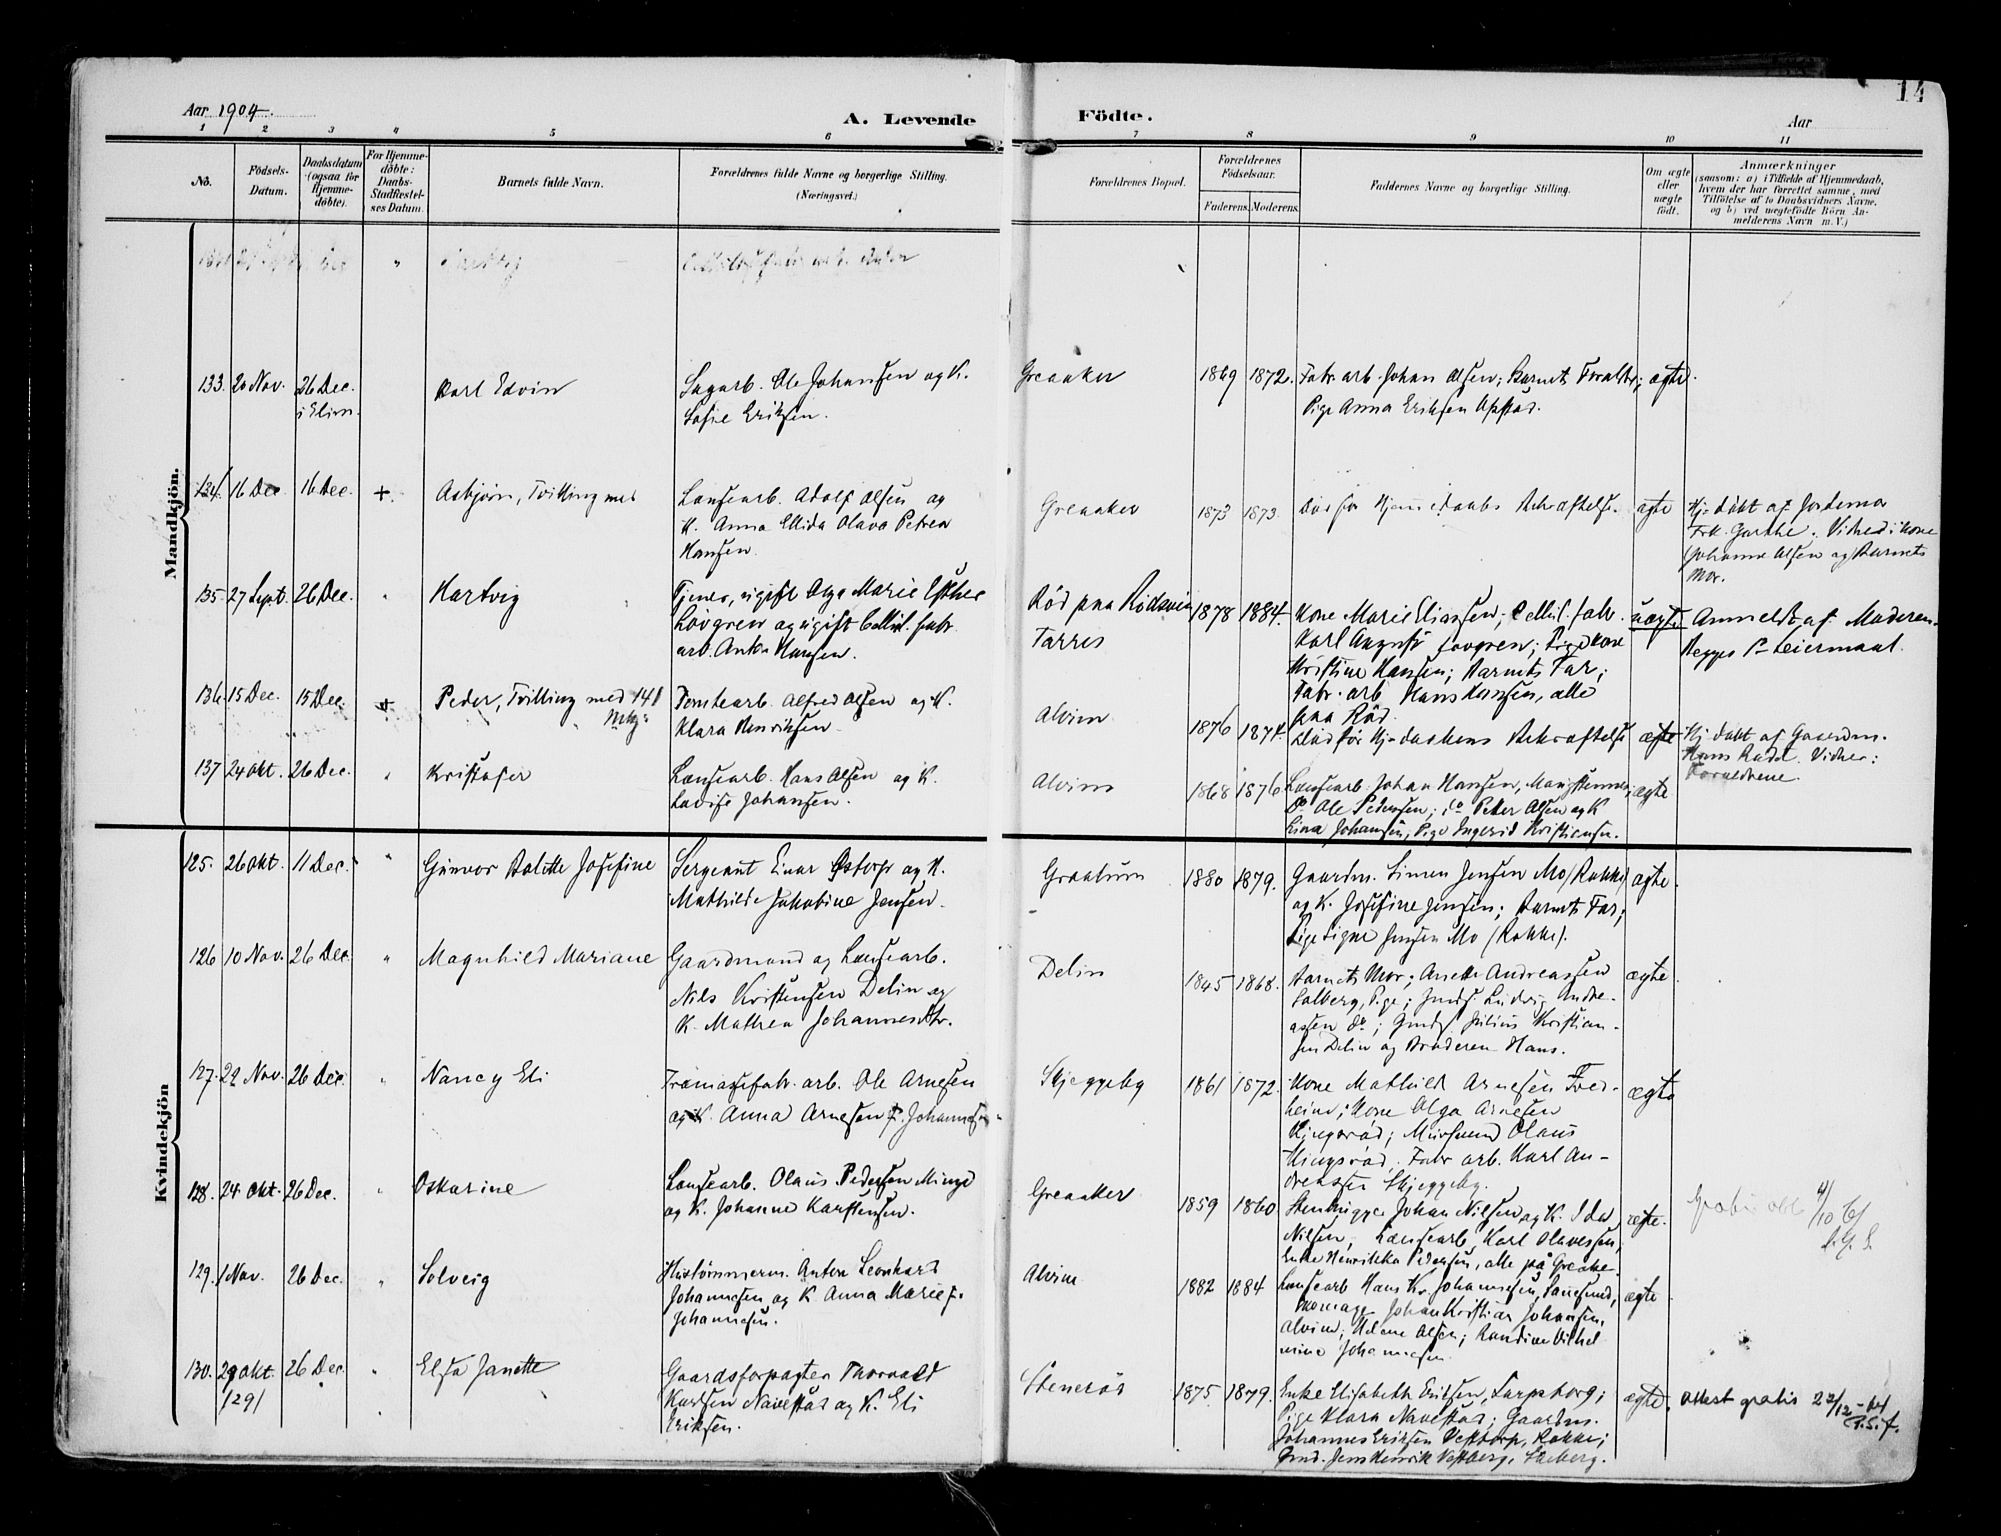 14
Aar 1904.
A. Levende
Födte.
Aar
1 2 3 4 5 6 7 8 9 10 11
No.
Födsels-
Datum.
Daabsdatum
(ogsaa for
Hjemme-
döbte).
For Hjemme-
döbte:
Daabs-
Stadfæstel-
ses Datum.
Barnets fulde Navn.
Forældrenes fulde Navne og borgerlige Stilling.
(Næringsvei.)
Forældrenes Bopæl.
Forældrenes
Födselsaar.
Faderens. Moderens.
Faddernes Navne og borgerlige Stilling.
Om ægte
eller
uægte
födt.
Anmærkninger
(saasom: a) i Tilfælde af Hjemmedaab,
hvem der har forrettet samme, med
Tilföielse af to Daabsvidners Navne,
og b) ved uægtefödte Börn An-
melderens Navn m. V.)
Mandkjön.
133. 20 Nov. 26 Dec.
i Elim.
Karl Edvin
Sagarb. Ole Johansen og K.
Sofie Eriksen.
Greaaker
1869 1872.
Fabr. arb. Johan Olsen; Barnets Forældre;
Pige Anna Eriksen Opstad.
ægte.
134. 16 Dec 16 Dec. +
Asbjørn, Tvilling med
Lænsearb. Adolf Olsen og
K. Anna Ellida Olava Petrea
Hansen.
Greaaker
1873 1873.
Død før Hjemmedaabs Bekræftelse.
ægte
Hj. døbt af Jordemor
Frk. Garthe. Vidne: Kone
Johanne Olsen og Barnets
Mor.
135. 27 Sept. 26 Dec. "
Hartvig
Tjener, ugift Olga Marie Esther
Lövgren og ugift Cellul. fabr.
arb. Anton Hansen.
Röd paa Rödsvin
Torres
1878 1884.
Kone Marie Eliassen; Cellul. fabr.
Karl August Lovgren; Pige Kone
Kristine Hansen; Barnets Far;
Fabr. arb Hans Hansen, alle
paa Röd.
uægte
Anmeldt af Moderen.
Begges 1ste Leiermaal.
136. 15 Dec. 15 Dec +
Peder, Tvilling med 148
Tomtearb. Alfred Olsen og K.
Klara Henriksen.
Alvim
1876 1874.
Død før Hj. daabens Bekræftelse
ægte
Hj. døbt af Gaardm.
Hans Radet. Vidner:
Forældrene.
137 24 Okt. 26 Dec. "
Kristofer
Lænsearb. Hans Olsen og K.
Lovise Johansen.
Alvim
1868 1876
Lænsearb. Johan Hansen,
Do Ole Pedersen; Do Peter Olsen og K
Lina Johansen, Pige Ingerid Kristiansen.
ægte
Kvindekjön
125. 26 Okt. 11 Dec. "
Gunvor Bolette Josefine
Sergeant Einar Østorp og K.
Mathilde Jakobine Jensen.
Graatum
1880 1879.
Gaardm. Simen Jensen Mo (Rokke)
og K. Josefine Jensen; Barnets Far;
Pige Signe Jensen Mo (Rokke).
ægte.
126 10 Nov. 26 Dec. "
Magnhild Mariane
Gaardmand og Lænsearb.
Nils Kristensen Delin og
K. Mathea Johannesdtr.
Delin
1845 1868.
Barnets Mor; Anette Andreassen
Solberg, Pige; Gmds. Ludvig Andre-
assen do; Gmds. Julius Kristian-
sen Delin og Broderen Hans.
ægte
127. 22 Nov. 26 Dec. "
Nancy Eli
Træmassefabr. arb. Ole Arnesen
og K. Anna Arnesen f. Johannesen
Skjeggeby
1861 1872.
Kone Mathild Arnesen Fred-
heim; Kone Olga Arnesen
Kingsröd; Mursvend Olaus
Kingsröd, Fabr. arb. Karl An-
dreassen Skjeggeby.
ægte
128. 24 Okt. 26 Dec. "
Oskarine
Lænsearb. Olaus Pedersen Minge
og K. Johanne Karstensen.
Greaaker
1859 1860
Stenhugger Johan Nilsen og K. Ida
Nilsen, Lænsearb. Karl Olavessen,
Enke Henrikka Pedersen, alle på Greaaker.
ægte.
4/10 61
129. 1 Nov. 26 Dec. "
Solveig
Hustömmerm. Anton Leonhard
Johannesen og K. Anna Marie f.
Johannesen.
Alvim
1882 1884
Lænsearb Hans Kr. Johannesen, Sannesund,
Skomager Johan Kristian Johansen,
Alvim; Helene Olsen; Randine Vilhel
mine Johannesen
ægte
130. 29 Okt. 26 Dec. "
(29)
Elsa Janette
Gaardsforpagter Thorvald
Karlsen Navestad og K. Eli
Eriksen.
Steneröd
1875 1879.
Enke Elisabeth Eriksen, Sarpsborg;
Pige Klara Navestad; Gaardm.
Johannes Eriksen Vestorp, Rokke;
Gmd. Jens Henrik Vestberg, Skeberg.
ægte.
Attest gratis 22/12-64